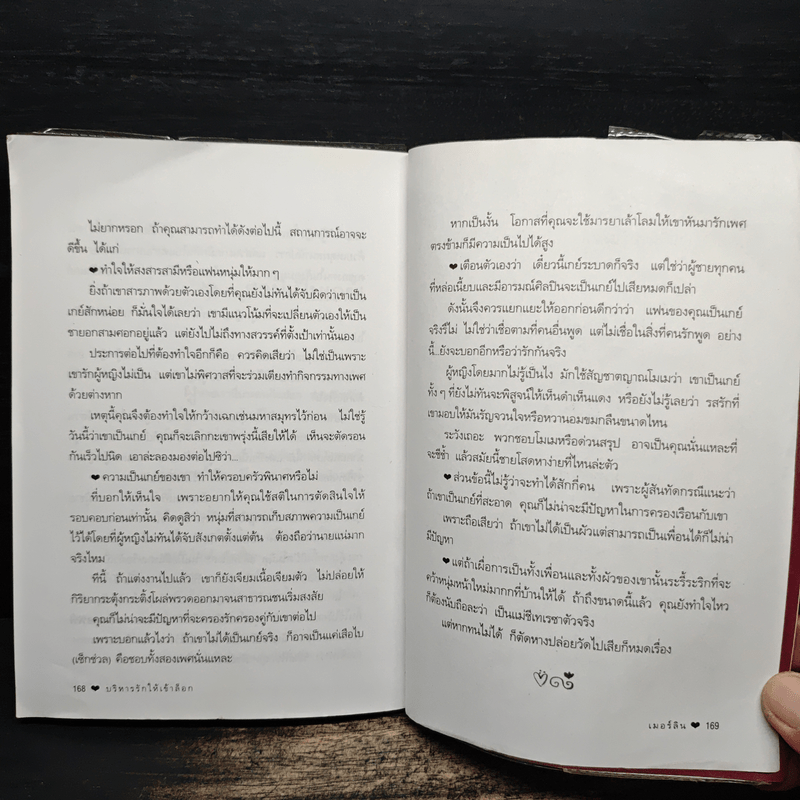 ไม่ยากหรอก ถ้าคุณสามารถทำได้ดังต่อไปนี้ สถานการณ์อาจจะ
ดีขึ้น ได้แก่
❤ ทำใจให้สงสารสามีหรือแฟนหนุ่มให้มาก ๆ
ยิ่งถ้าเขาสารภาพด้วยตัวเองโดยที่คุณยังไม่ทันได้จับผิดว่าเขาเป็น
เกย์สักหน่อย ก็มั่นใจได้เลยว่า เขามีแนวโน้มที่จะเปลี่ยนตัวเองให้เป็น
ชายอกสามศอกอยู่แล้ว แต่ยังไปไม่ถึงทางสวรรค์ที่ตั้งเป้าเท่านั้นเอง
ประการต่อไปที่ต้องทำใจอีกก็คือ ควรคิดเสียว่า ไม่ใช่เป็นเพราะ
เขารักผู้หญิงไม่เป็น แต่เขาไม่พิศวาสที่จะร่วมเตียงทำกิจกรรมทางเพศ
ด้วยต่างหาก
เหตุนี้คุณจึงต้องทำใจให้กว้างเฉกเช่นมหาสมุทรไว้ก่อน ไม่ใช่รู้
วันนี้ว่าเขาเป็นเกย์ คุณก็จะเลิกกะเขาพรุ่งนี้เสียให้ได้ เห็นจะตัดรอน
กันเร็วไปนิด เอาล่ะลองมองต่อไปซิว่า...
❤ ความเป็นเกย์ของเขา ทำให้ครอบครัวพินาศหรือไม่
ที่บอกให้เห็นใจ เพราะอยากให้คุณใช้สติในการตัดสินใจให้
รอบคอบก่อนเท่านั้น คิดดูสิว่า หนุ่มที่สามารถเก็บสภาพความเป็นเกย์
ไว้ได้โดยที่ผู้หญิงไม่ทันได้จับสังเกตตั้งแต่ต้น ต้องถือว่านายแน่มาก
จริงไหม
ทีนี้ ถ้าแต่งงานไปแล้ว เขาก็ยังเจียมเนื้อเจียมตัว ไม่ปล่อยให้
กิริยากระตุ้งกระติ้งโผล่พรวดออกมาจนสาธารณชนเริ่มสงสัย
คุณก็ไม่น่าจะมีปัญหาที่จะครองรักครองคู่กับเขาต่อไป
เพราะบอกแล้วไงว่า ถ้าเขาไม่ได้เป็นเกย์จริง ก็อาจเป็นแค่เสือไบ
(เซ็กช่วล) คือชอบทั้งสองเพศนั่นแหละ
168 ❤ บริหารรักให้เข้าล็อก
หากเป็นงั้น โอกาสที่คุณจะใช้มารยาเล้าโลมให้เขาหันมารักเพศ
ตรงข้ามก็มีความเป็นไปได้สูง
❤ เตือนตัวเองว่า เดี๋ยวนี้เกย์ระบาดก็จริง แต่ใช่ว่าผู้ชายทุกคน
ที่หล่อเนี้ยบและมีอารมณ์ศิลปินจะเป็นเกย์ไปเสียหมดก็เปล่า
ดังนั้นจึงควรแยกแยะให้ออกก่อนดีกว่าว่า แฟนของคุณเป็นเกย์
จริงรึไม่ ไม่ใช่ว่าเชื่อตามที่คนอื่นพูด แต่ไม่เชื่อในสิ่งที่คนรักพูด อย่าง
นี้..ยังจะบอกอีกหรือว่ารักกันจริง
ผู้หญิงโดยมากไม่รู้เป็นไง มักใช้สัญชาตญาณโมเมว่า เขาเป็นเกย์
ทั้ง ๆ ที่ยังไม่ทันจะพิสูจน์ให้เห็นดำเห็นแดง หรือยังไม่รู้เลยว่า รสรักที่
เขามอบให้มันรัญจวนใจหรือหวานอมขมกลืนขนาดไหน
ระวังเถอะ พวกชอบโมเมหรือด่วนสรุป อาจเป็นคุณนั่นแหละที่
จะชีช้ำ แล้วสมัยนี้ชายโสดหาง่ายที่ไหนล่ะตัว
❤ ส่วนข้อนี้ไม่รู้ว่าจะทำได้สักกี่คน เพราะผู้สันทัดกรณีแนะว่า
ถ้าเขาเป็นเกย์ที่สะอาด คุณก็ไม่น่าจะมีปัญหาในการครองเรือนกับเขา
เพราะถือเสียว่า ถ้าเขาไม่ได้เป็นผัวแต่สามารถเป็นเพื่อนได้ก็ไม่น่า
มีปัญหา
❤ แต่ถ้าเผื่อการเป็นทั้งเพื่อนและทั้งผัวของเขานั้นระรี้ระริกที่จะ
คว้าหนุ่มหน้าใหม่มากกที่บ้านให้ได้ ถ้าถึงขนาดนี้แล้ว คุณยังทำใจไหว
ก็ต้องนับถือละว่า เป็นแม่ชีเทเรซาตัวจริง
แต่หากทนไม่ได้ ก็ตัดหางปล่อยวัดไปเสียก็หมดเรื่อง
เมอร์ลิน ❤ 169